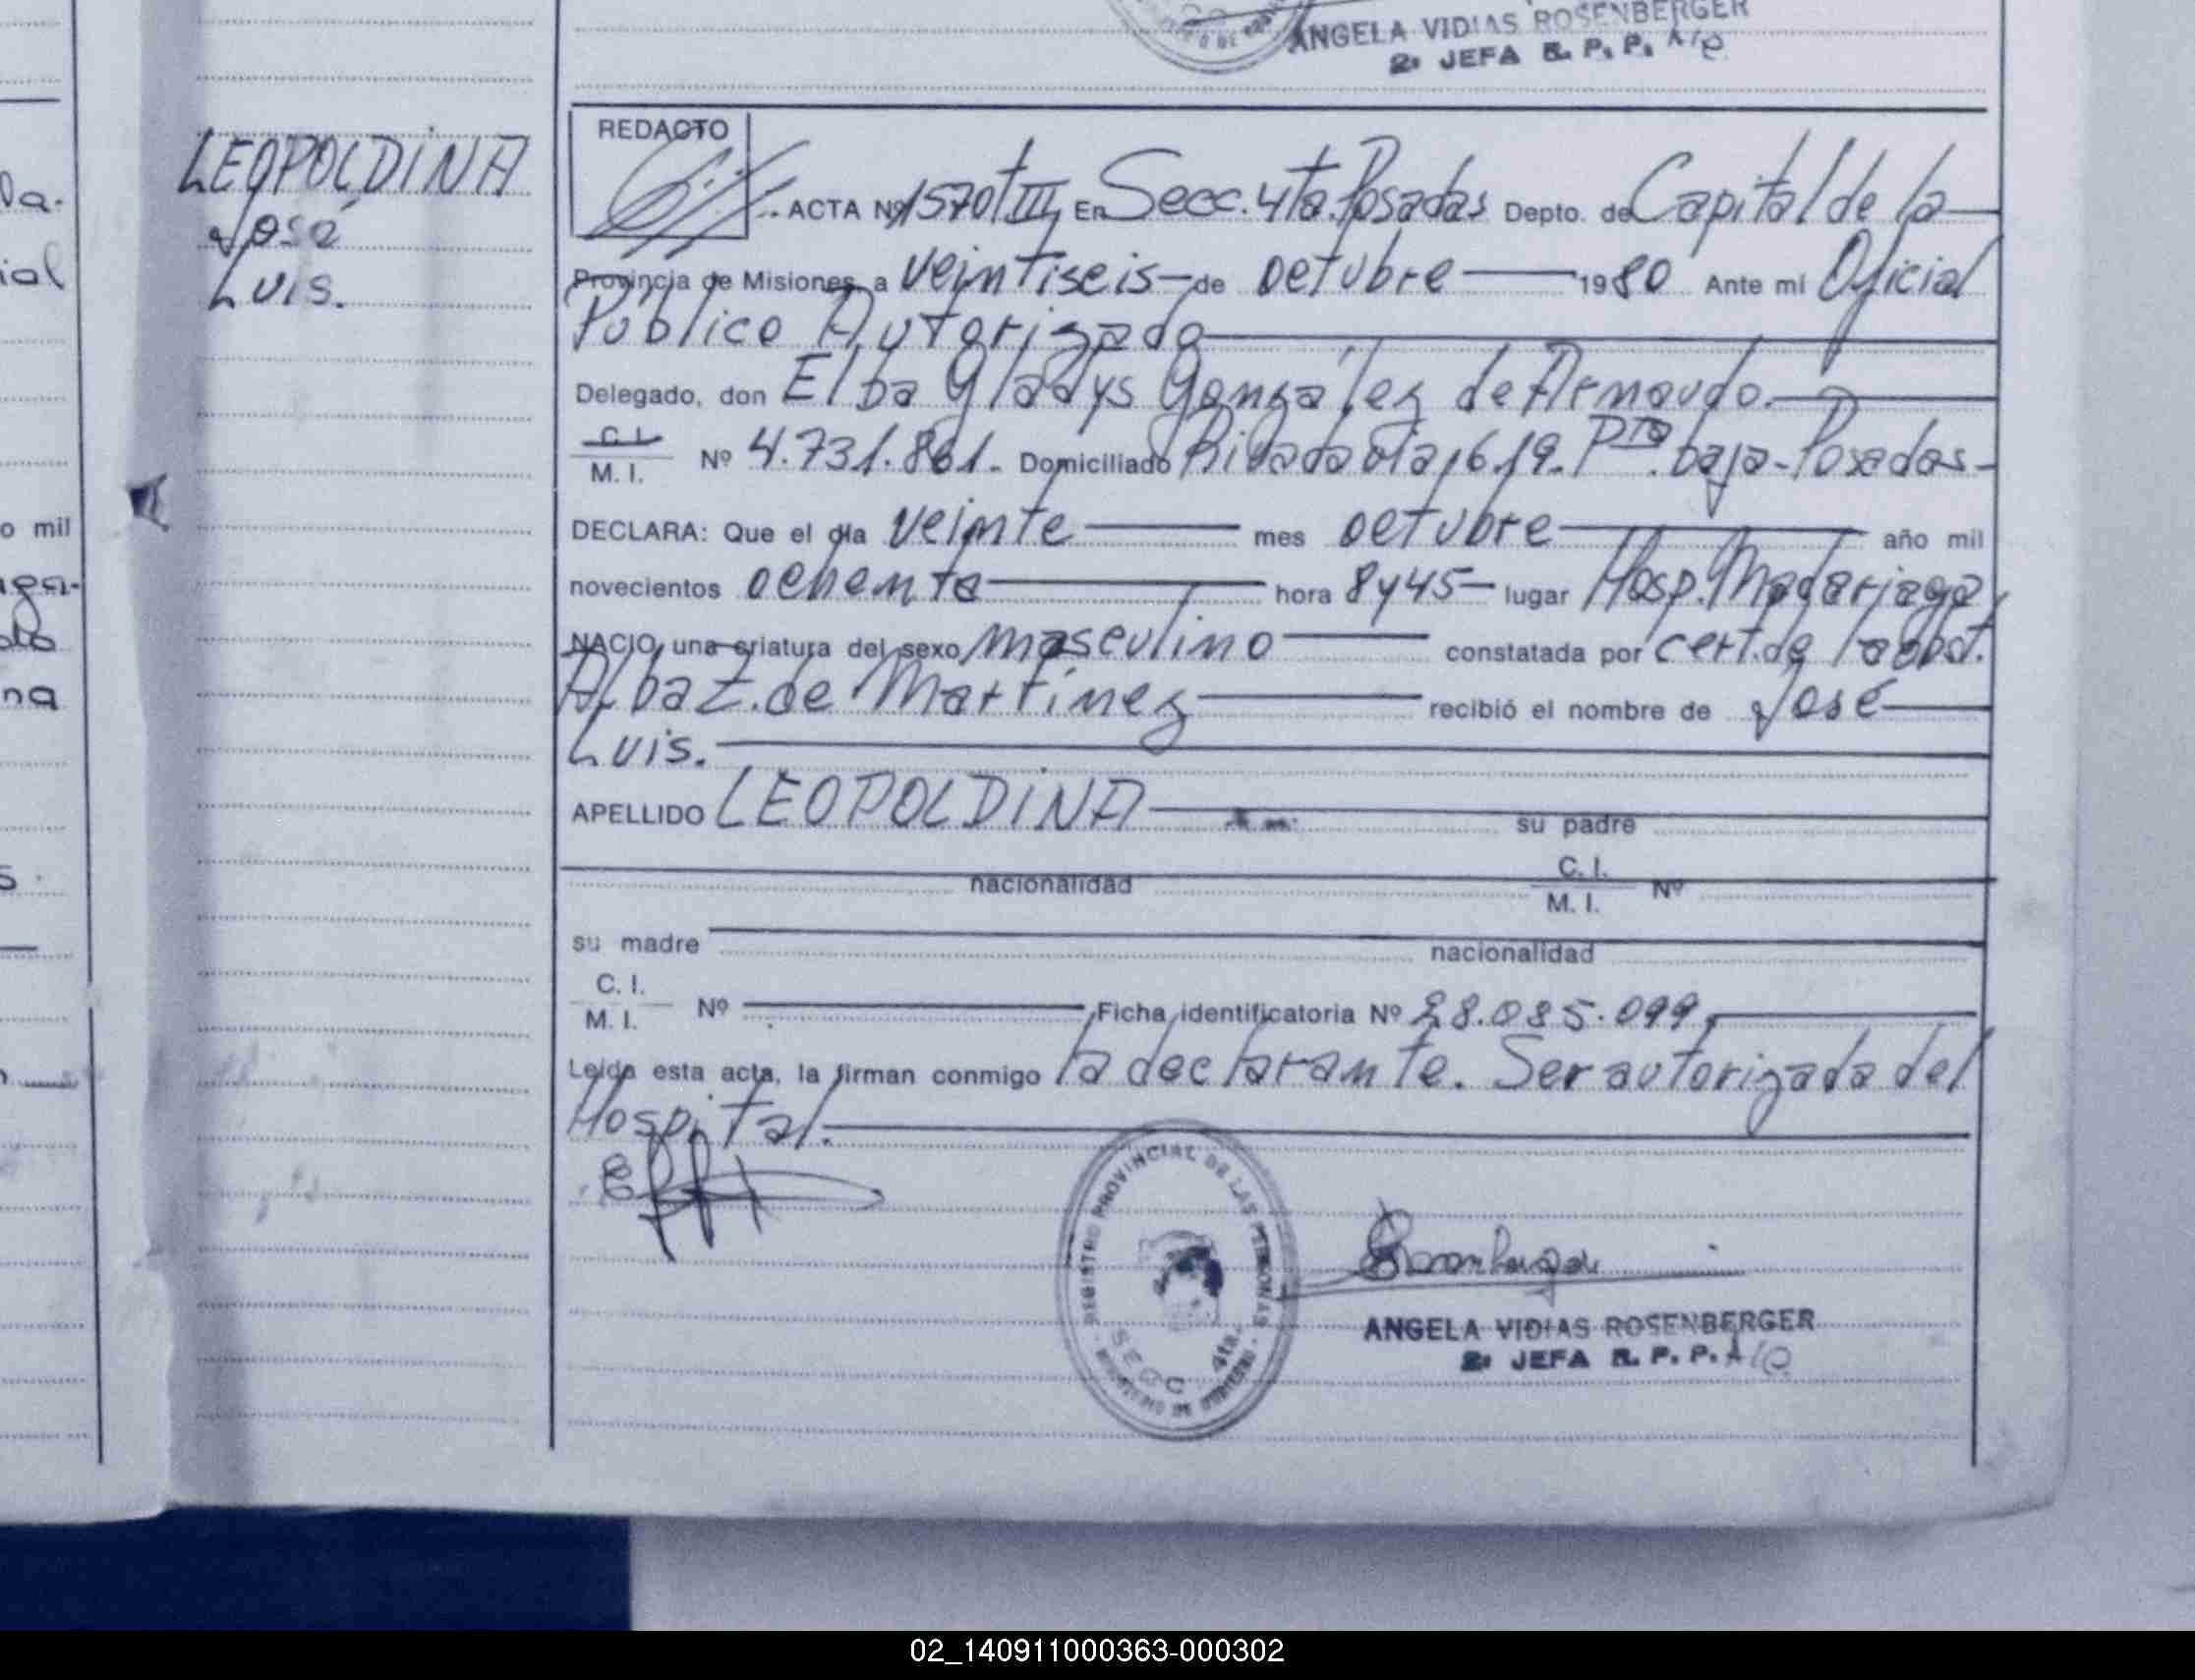 ANGELA VIDIAS ROSENBERGER
2ª JEFA R. P. P. A/C
LEOPOLDINA
José
Luis.
da.
ial
o mil
na
REDACTO
ACTA Nº 1570 t III, En Secc. 4ta. Posadas Depto. de Capital de la
Provincia de Misiones, a veintiseis de octubre 1980 Ante mi Oficial
Público Autorizado
Delegado, don Elba Gladys Gonzalez de Arnaudo.
C. I.
M. I. Nº 4.731.861. Domiciliado Rivadavia 1619. Pta. baja - Posadas -
DECLARA: Que el día veinte mes octubre año mil
novecientos ochenta hora 8 y 45 lugar Hosp. Madariaga
NACIO, una criatura del sexo masculino constatada por cert. de
Alba Z. de Martinez recibió el nombre de José
Luis.
APELLIDO LEOPOLDINA su padre
nacionalidad C. I.
M. I. Nº
su madre nacionalidad
C. I.
M. I. Nº Ficha identificatoria Nº 28.085.099,
Leída esta acta, la firman conmigo la declarante. Ser autorizada del
Hospital.
REGISTRO PROVINCIAL DE LAS PERSONAS
SECC 4ta.
MINISTERIO DE GOBIERNO
ANGELA VIDIAS ROSENBERGER
2ª JEFA R. P. P. A/C
02_140911000363-000302